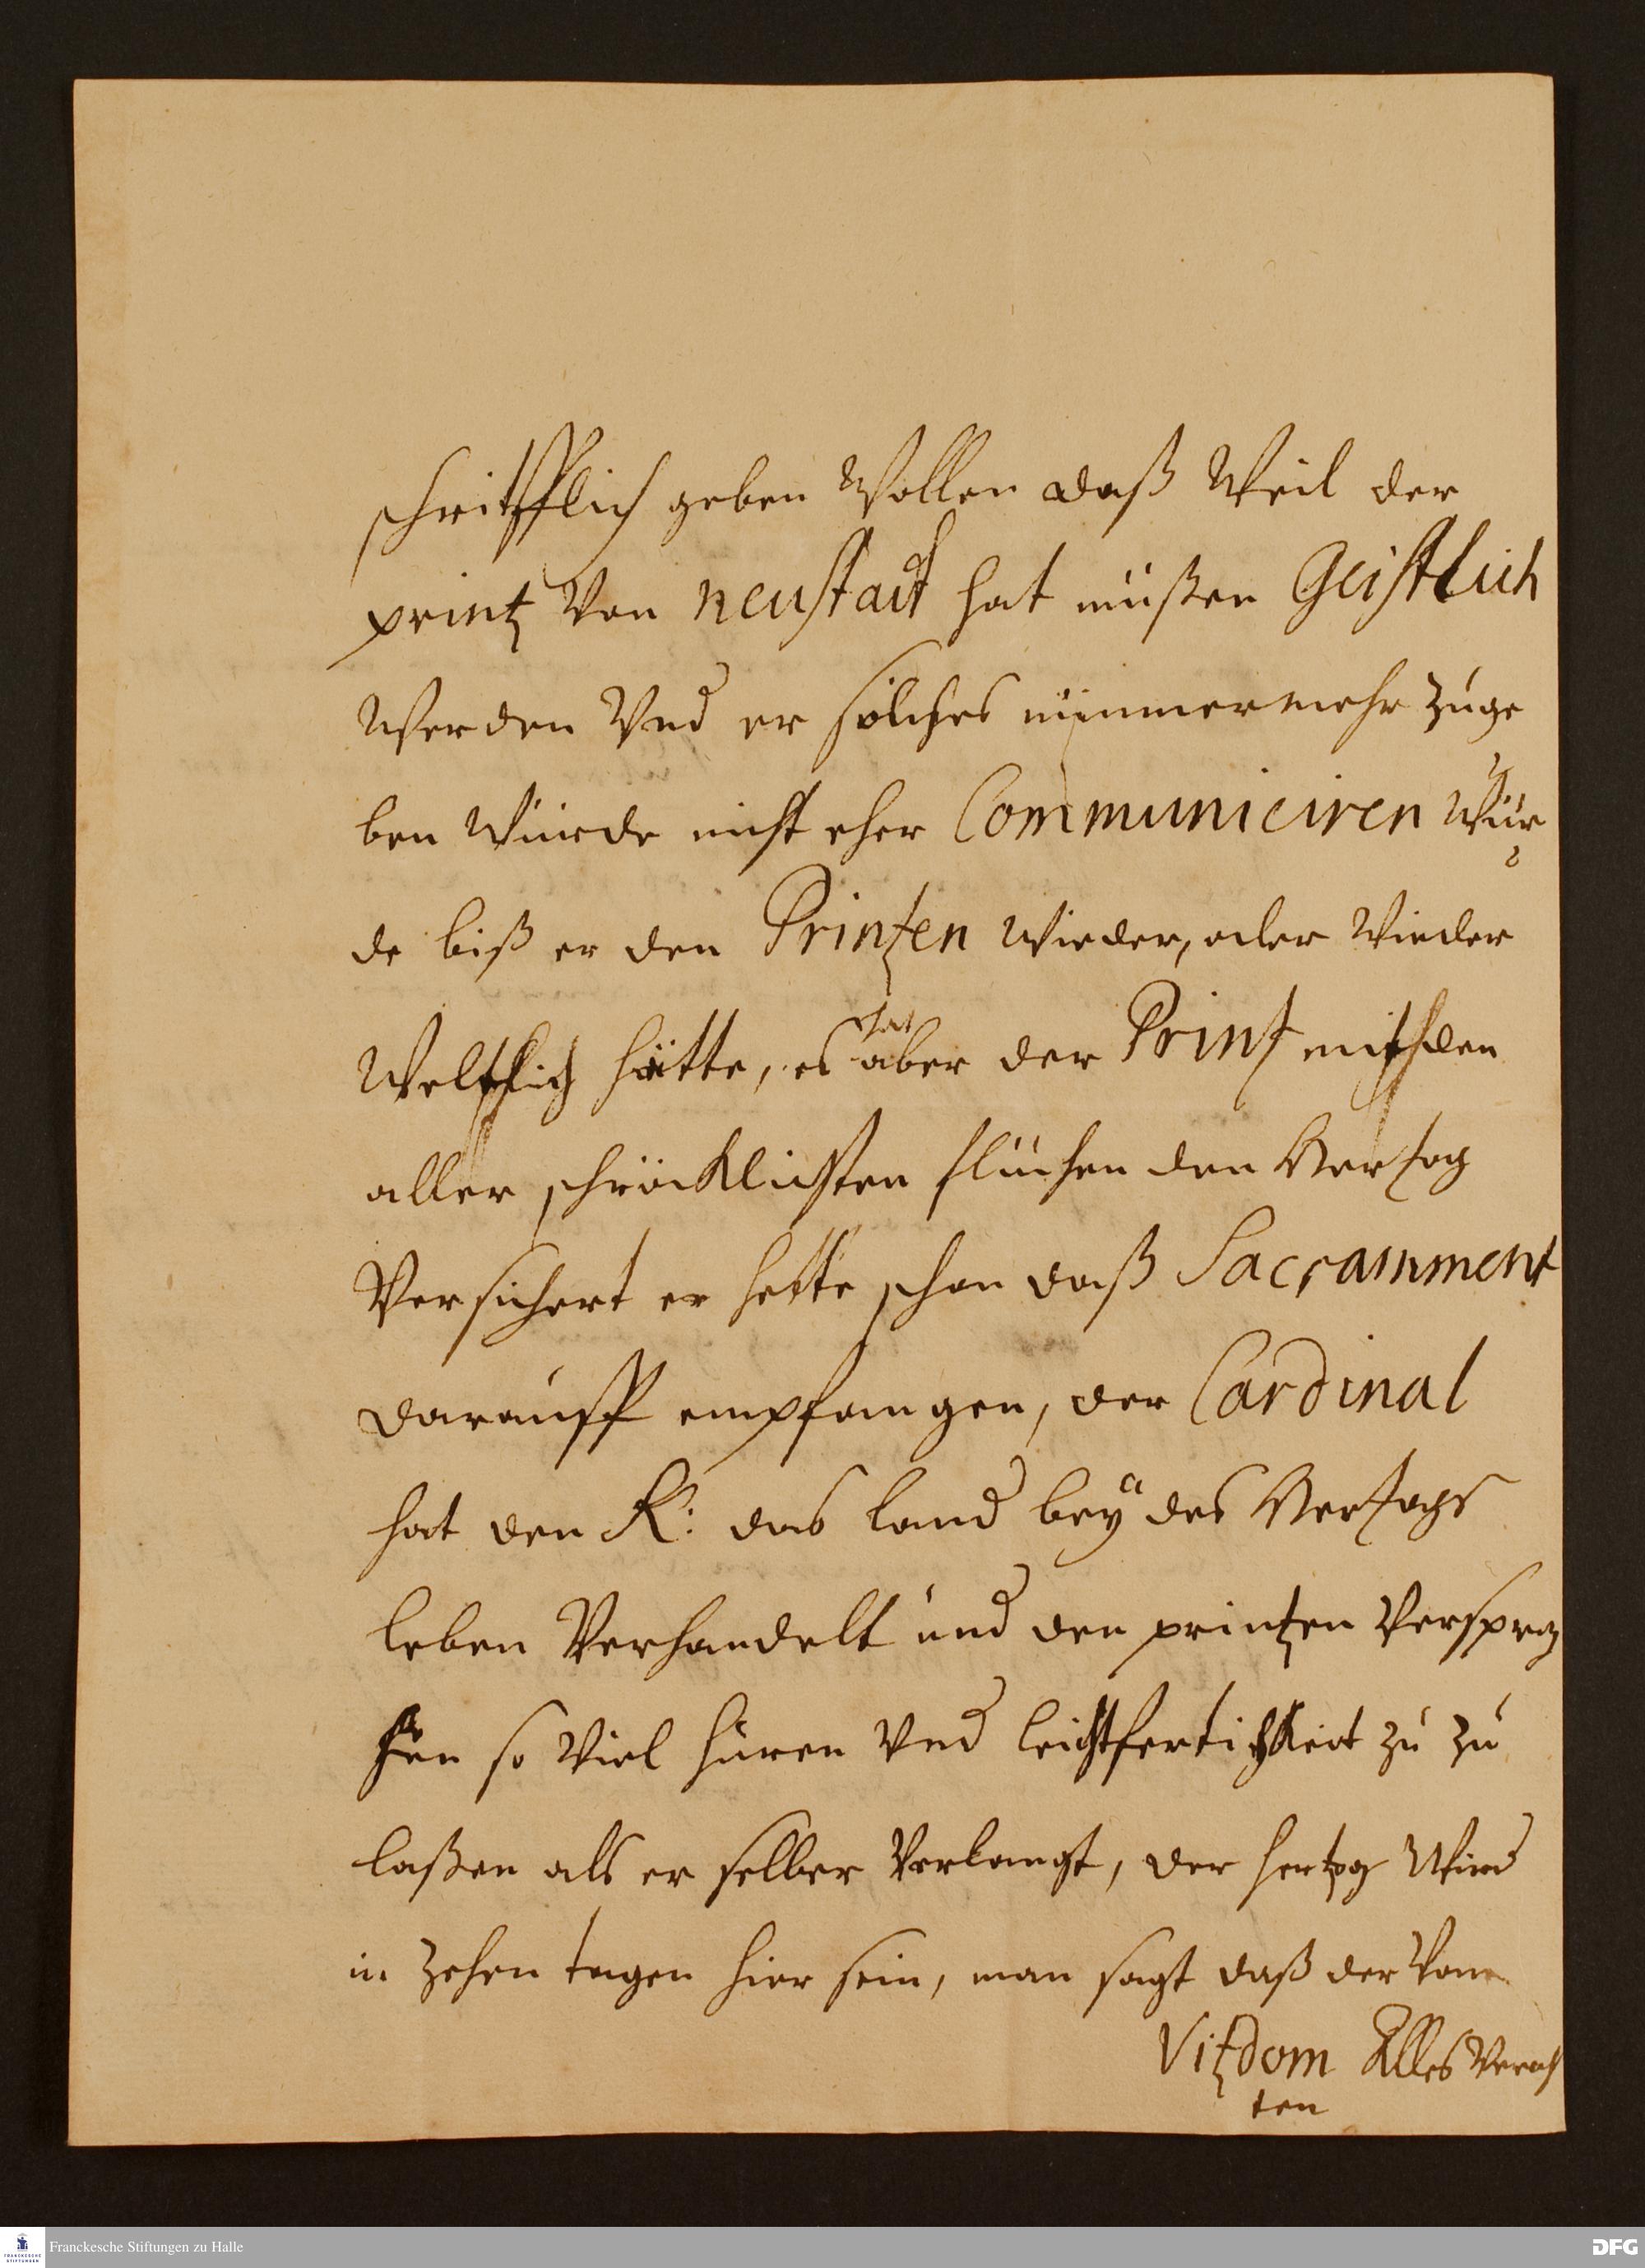 schritfflich geben Wollen daß Weil der
printz Von neustadt hat müßen Geistlich
Werden Vnd er solches nimmermehr zuge
ben Würde nicht eher Communiciren Wür
de biß er den Printzen Wieder, oder Wieder
Weltlich hätte, es hat aber der Printz mit den
aller schröcklichsten flüchen den Hertzog
Versichert er hette schon daß Sacramment
darauff empfangen, der Cardinal
hat den K: das land beÿ des Hertzogs
leben Verhandelt und den printzen Versproch
hen so Viel huren Vnd leichtfertichkeit zu zu
laßen als er selber Verlangt, der hertzog Wird
in zehen tagen hier sein, man sagt daß der Von
Vitzdom Alles Verach
ten
Franckesche Stiftungen zu Halle
FRANCKESCHE STIFTUNGEN
DFG